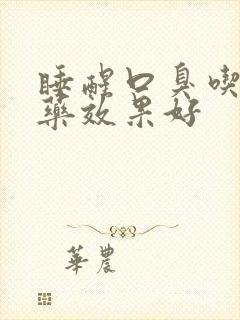 睡醒口臭喫
藥效果好
華農